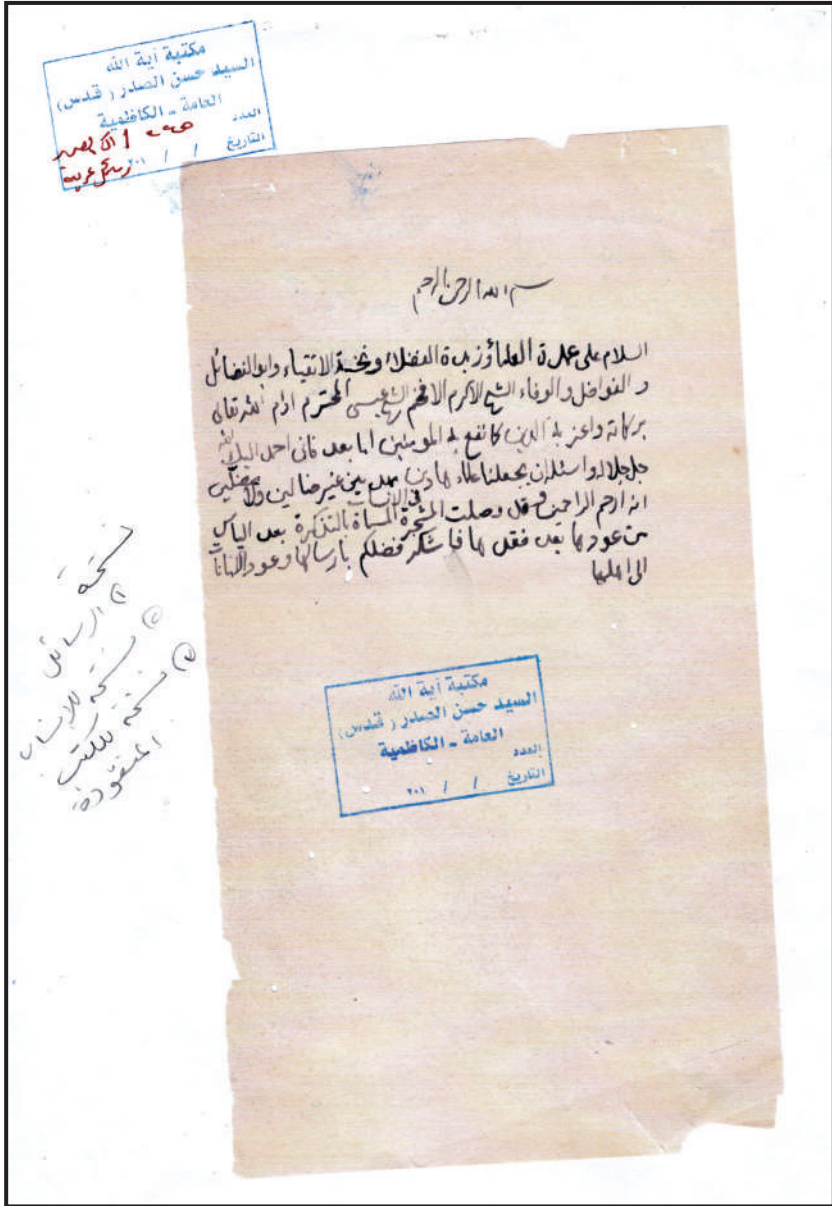 مكتبة آية الله
السيد حسن الصدر (قدس)
العامة - الكاظمية
العدد
التاريخ / / ٢٠١
بسم الله الرحمن الرحيم
السلام على عمدة العلماء وزبدة الفضلاء ونخبة الاتقياء وابو الفضائل
و الفواضل والوفاء الشيخ الاكرم الافخم الشيخ عيسى المحترم ادام الله تعالى
بركاته واعز به الدين كما نفع به المومنين اما بعد فاني احمد اليك الله
جل جلاله واسئله ان يجعلنا علماء هادين مهديين غير ضالين ولا مضلين
انه ارحم الراحمين وقد وصلت المشجرة في الانساب المسماة بالتذكرة بعد الياس
من عودها بعد فقدها فاشكر فضلكم بارسالها وعود الامانات
الى اهلها
مكتبة آية الله
السيد حسن الصدر (قدس)
العامة - الكاظمية
العدد
التاريخ / / ٢٠١
نسخة
١ الرسائل
٢ نسخة للانساب
٣ نسخة للكتب
المفقودة